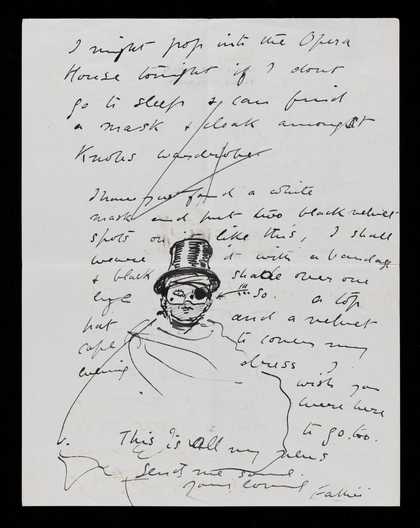 I might pop into the Opera
House tonight if I dont
go to sleep & can find
a mask & cloak amongst
Knolls wardrobes
I have just found a white
mask and put two black velvet
spots on it like this, I shall
weare it with a bandage
& black shade over one
eye so. a top
hat and a velvet
cape to cover my
evening dress I
wish you
were here
to go. too.
This is all my news
Send me some.
Your loving